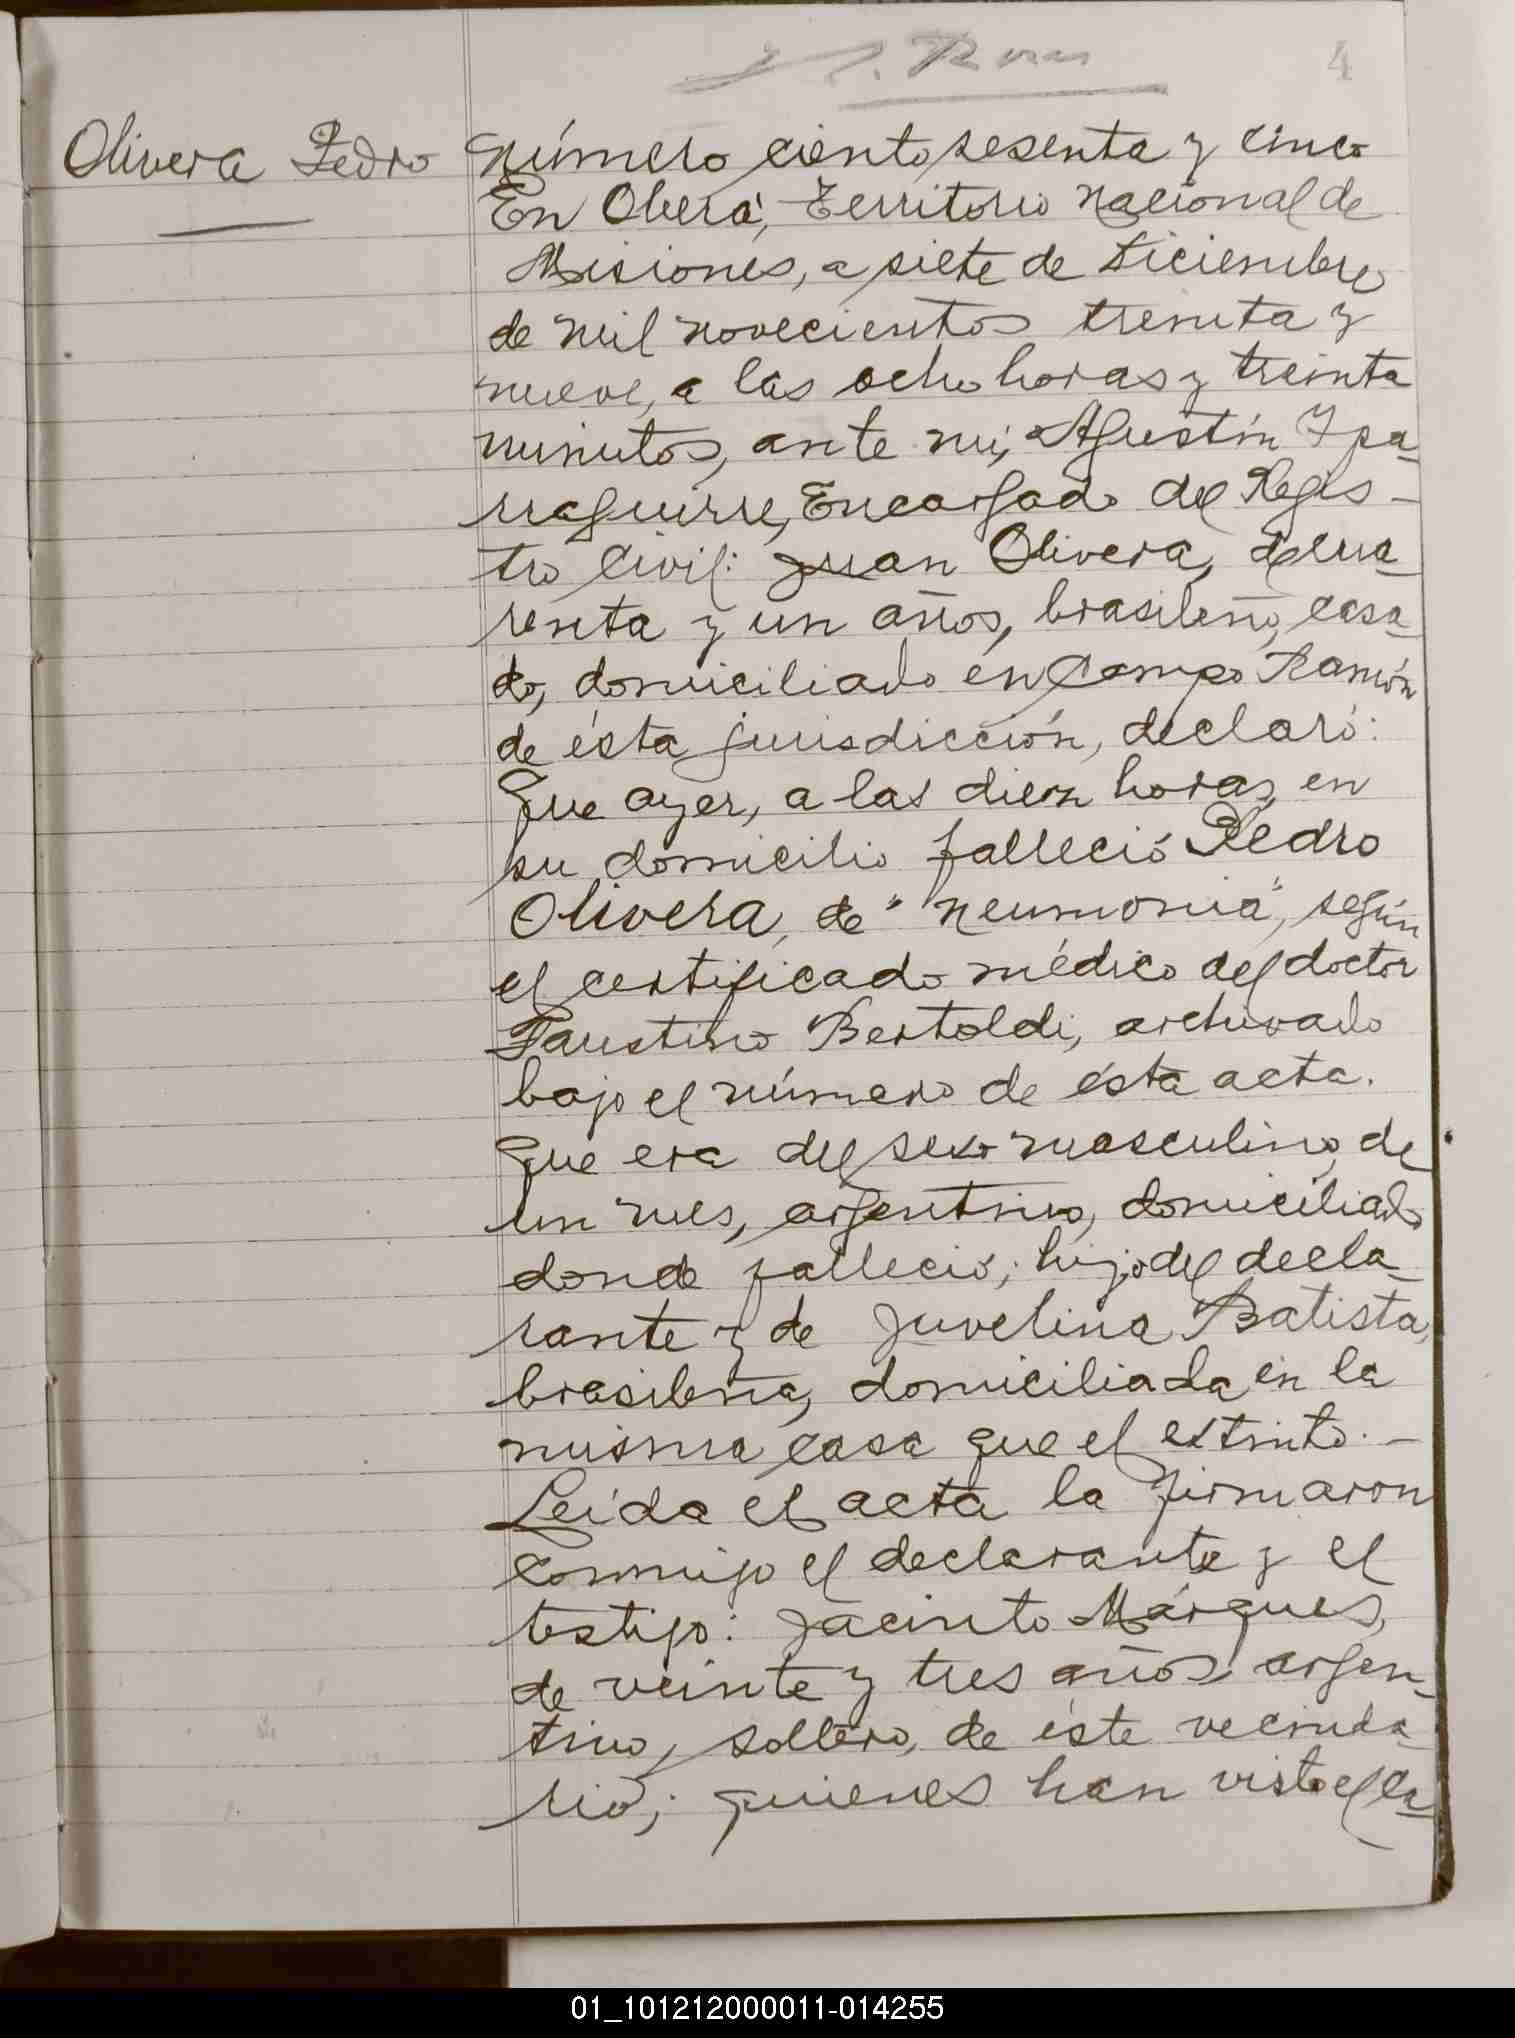 4
Olivera Pedro
Número ciento sesenta y cinco
En Oberá, Territorio Nacional de
Misiones, a siete de Diciembre
de mil novecientos treinta y
nueve, a las ocho horas y treinta
minutos, ante mi, Agustín Ypa-
rraguirre, Encargado del Regis-
tro Civil: Juan Olivera, de cua-
renta y un años, brasileño, casa-
do, domiciliado en Campo Ramón
de ésta jurisdicción, declaró:
Que ayer, a las diez horas, en
su domicilio falleció Pedro
Olivera, de "neumonia", según
el certificado médico del doctor
Faustino Bertoldi, archivado
bajo el número de ésta acta.
Que era del sexo masculino, de
un mes, argentino, domiciliado
donde falleció; hijo del decla-
rante y de Juvelina Batista,
brasileña, domiciliada en la
misma casa que el extinto. -
Leída el acta la firmaron
conmigo el declarante y el
testigo: Jacinto Márques,
de veinte y tres años argen-
tino, soltero, de éste vecinda-
rio; quienes han visto el ca-
01_101212000011-014255